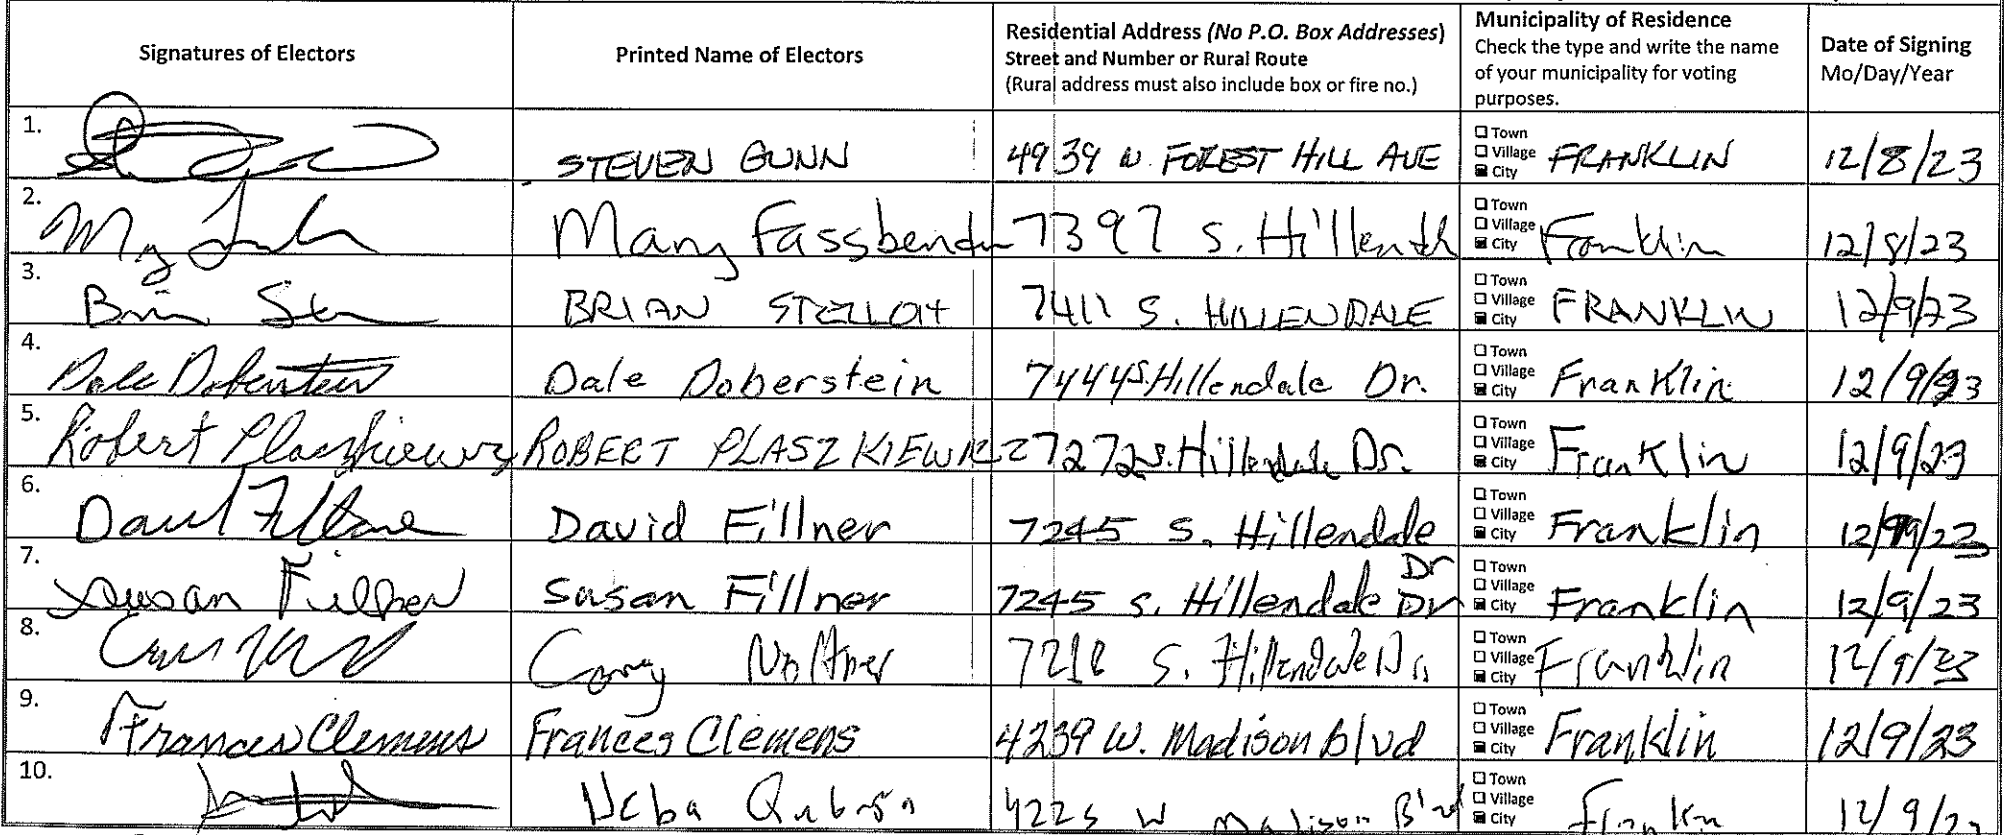 Signatures of Electors
Printed Name of Electors
Residential Address (No P.O. Box Addresses)
Street and Number or Rural Route
(Rural address must also include box or fire no.)
Municipality of Residence
Check the type and write the name
of your municipality for voting
purposes.
Date of Signing
Mo/Day/Year
1. STEVEN GUNN 4939 W. FOREST HILL AVE Town Village City FRANKLIN 12/8/23
2. Mary Fassbender 7397 S. Town Village City Franklin 12/8/23
3. Brian BRIAN 7411 S. HILLENDALE Town Village City FRANKLIN 12/9/23
4. Dale Doberstein Dale Doberstein 7444 S. Hillendale Dr. Town Village City Franklin 12/9/23
5. Robert Plaszkiewicz ROBERT PLASZKIEWICZ 7272 S. Hillendale Dr. Town Village City Franklin 12/9/23
6. David Fillner David Fillner 7245 S. Hillendale Dr Town Village City Franklin 12/9/23
7. Susan Fillner Susan Fillner 7245 S. Hillendale Dr Town Village City Franklin 12/9/23
8. Noltner S. Hillendale Dr. Town Village City Franklin 12/9/23
9. Frances Clemens Frances Clemens 4239 W. Madison Blvd Town Village City Franklin 12/9/23
10. 4225 W Madison Blvd Town Village City Franklin 12/9/23